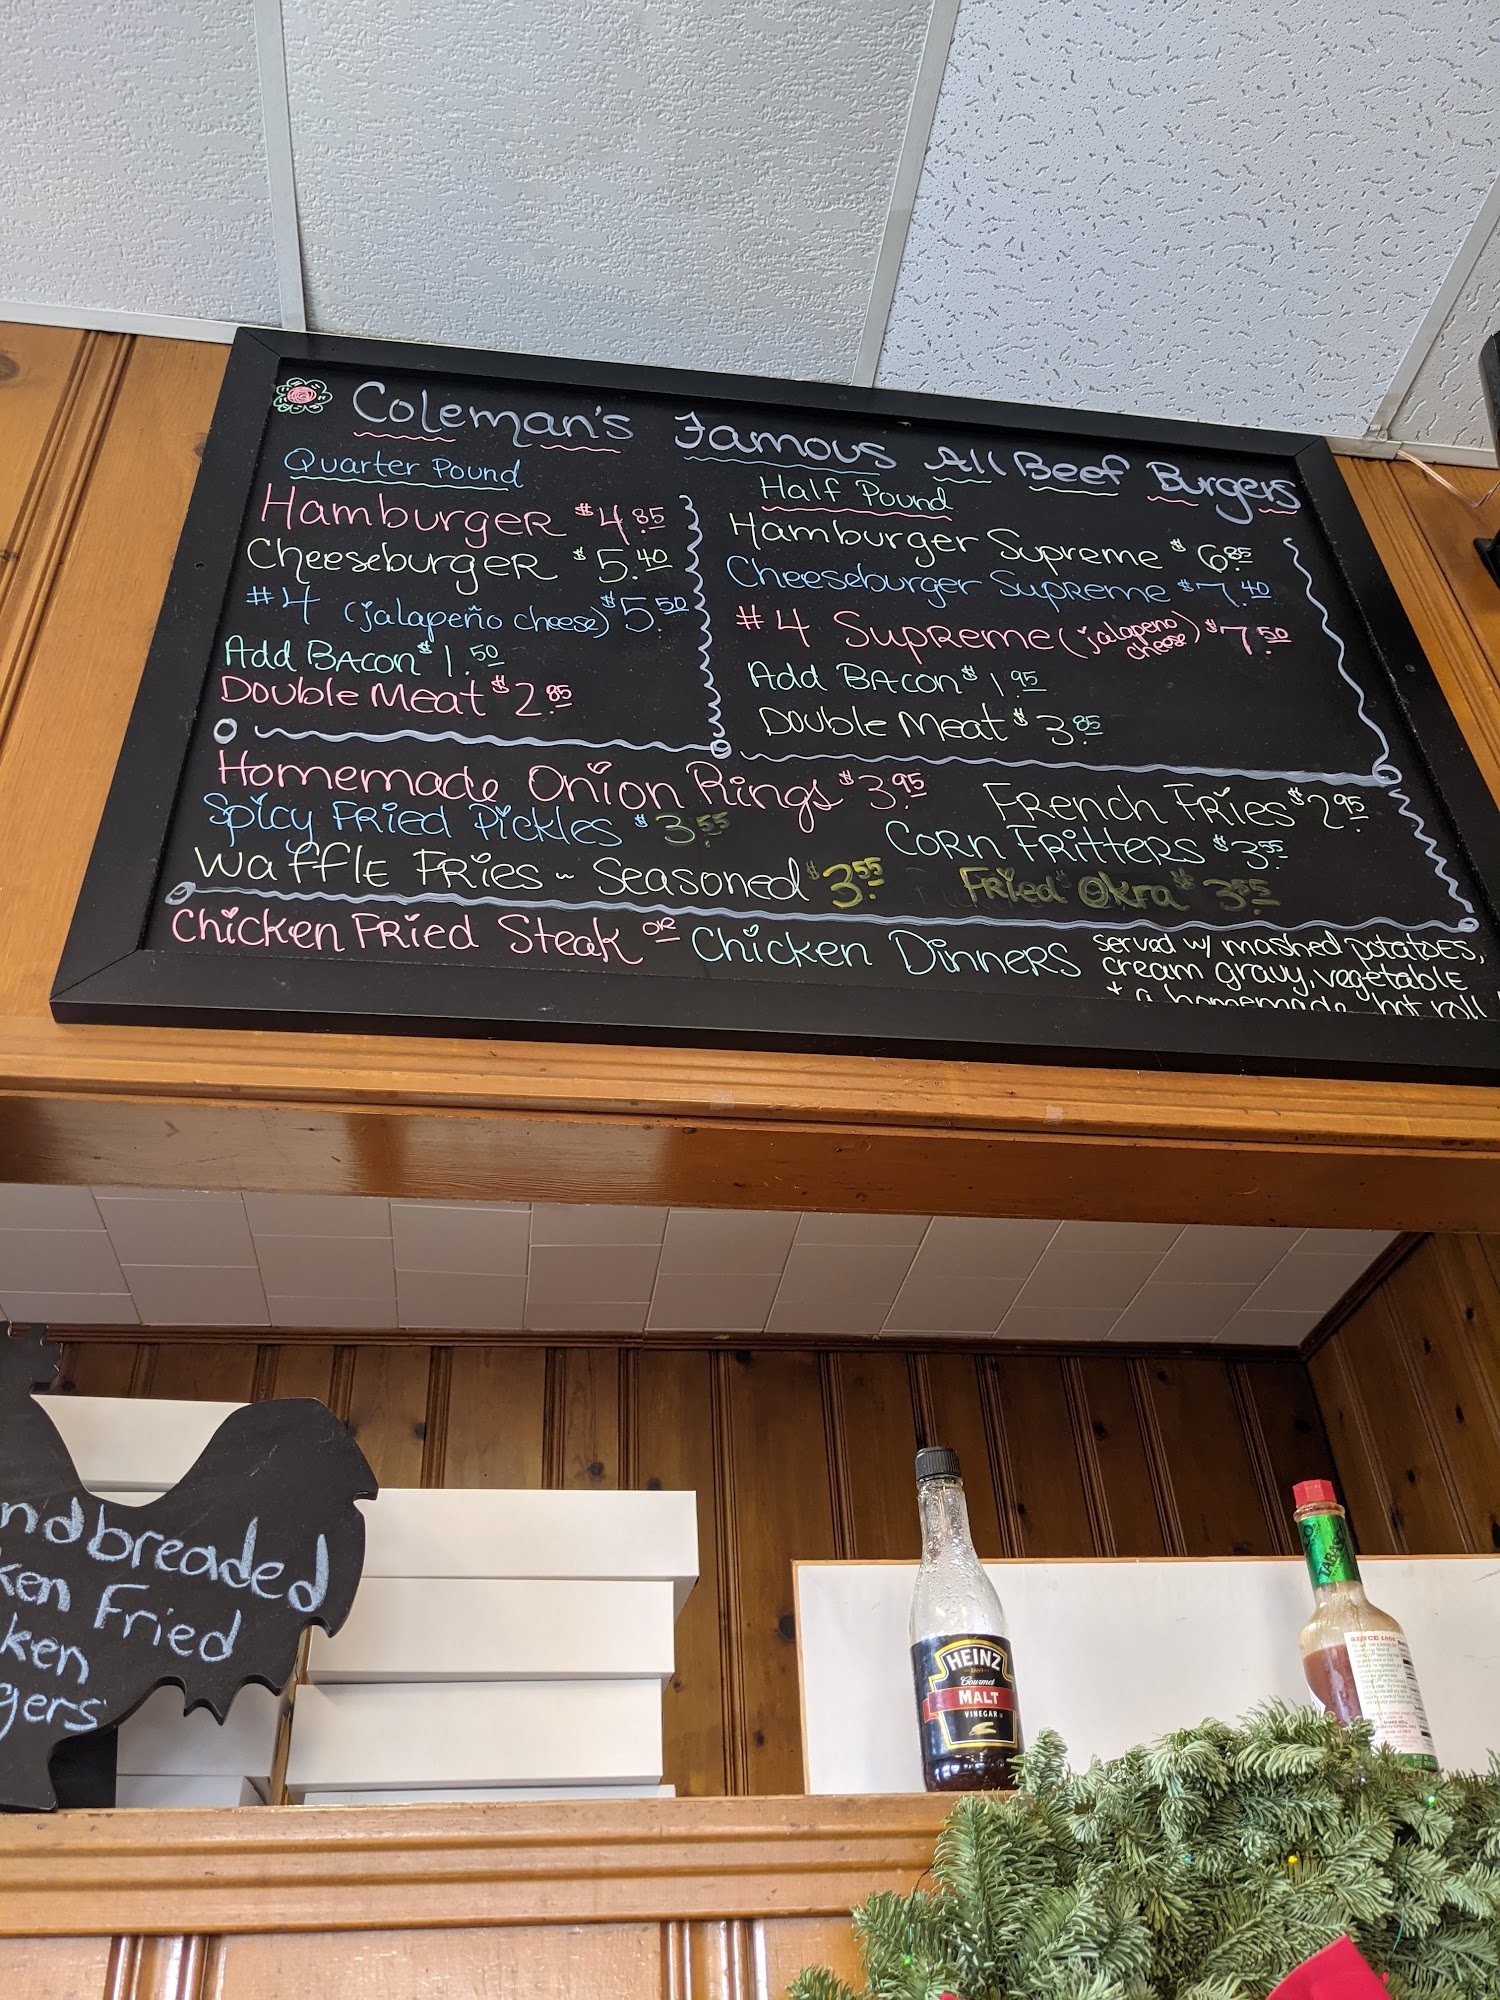 Coleman's Famous All Beef Burgers
Quarter Pound
Hamburger $4.85
Cheeseburger $5.40
#4 (jalapeño cheese) $5.50
Add Bacon $1.50
Double Meat $2.85
Half Pound
Hamburger Supreme $6.85
Cheeseburger Supreme $7.40
#4 Supreme (jalapeno cheese) $7.50
Add Bacon $1.95
Double Meat $3.85
Homemade Onion Rings $3.95
French Fries $2.95
Spicy Fried Pickles $3.55
Corn Fritters $3.55
Waffle Fries ~ Seasoned $3.55
Fried Okra $3.55
Chicken Fried Steak or Chicken Dinners
served w/ mashed potatoes,
cream gravy, vegetable
+ a homemade hot roll
ndbreaded
ken Fried
ken
gers
HEINZ
Gourmet
MALT
VINEGAR
TABASCO